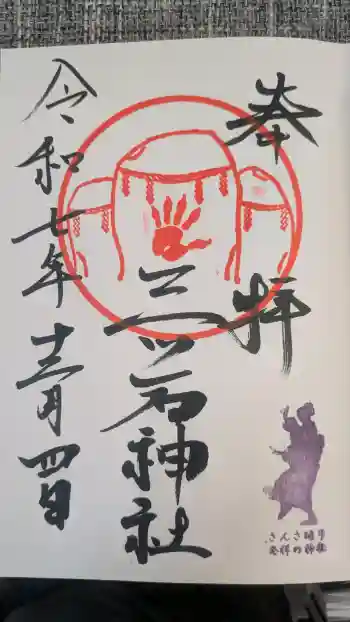 奉拝
三ツ石神社
令和七年十二月四日
さんさ踊り
発祥の神社